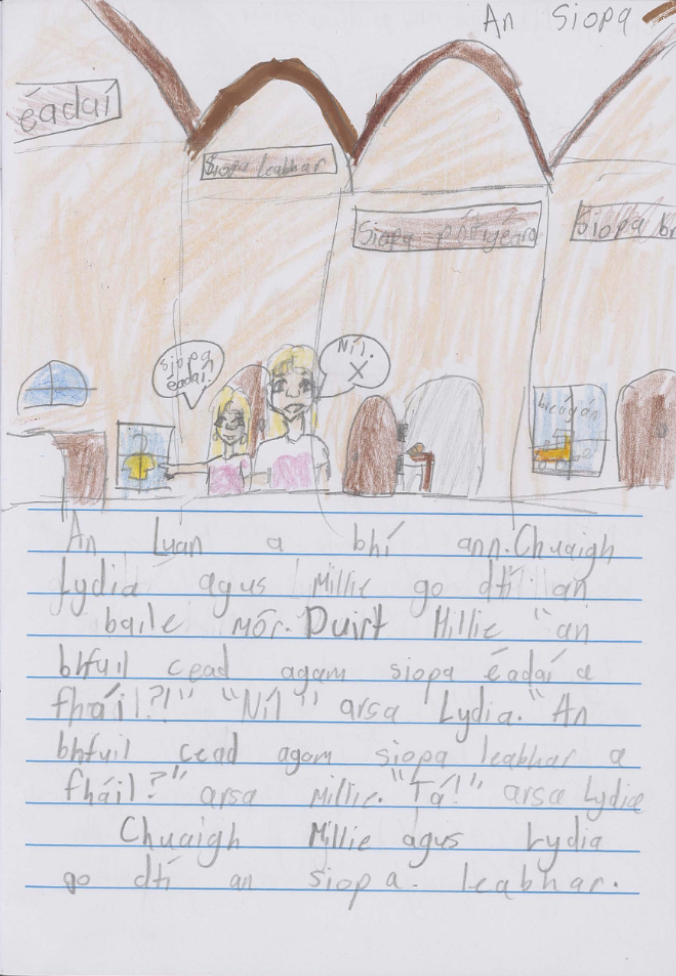 An Siopa
éadaí
Siopa leabhar
Siopa
Siopa br
siopa
éadaí.
Níl.
X
An Luan a bhí ann. Chuaigh
Lydia agus Millie go dtí an
baile mór. Duirt Millie "an
bhfuil cead agam siopa éadaí a
fháil?!" "Níl" arsa Lydia. "An
bhfuil cead agam siopa leabhar a
fháil?" arsa Millie. "Tá!" arsa Lydia
Chuaigh Millie agus Lydia
go dtí an siopa. leabhar.